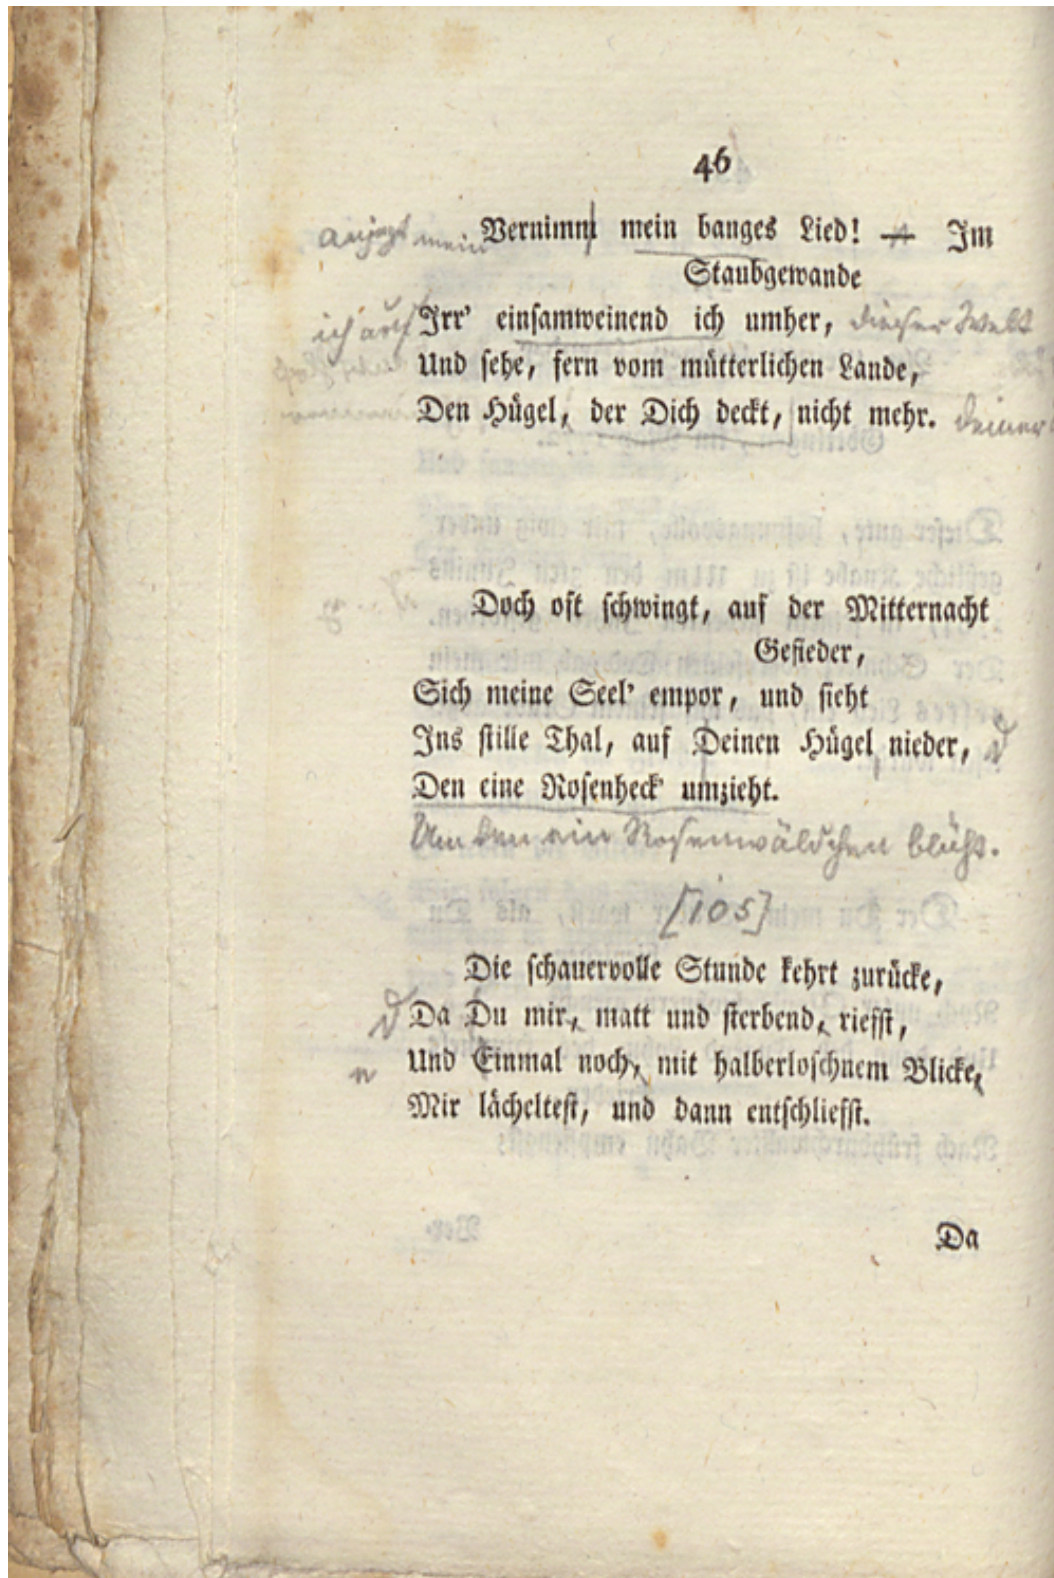 46
Vernimm mein banges Lied! — Im
Staubgewande
ich auf Irr' einsamweinend ich umher, dieser Welt
Und sehe, fern vom mütterlichen Lande,
Den Hügel, der Dich deckt, nicht mehr. deiner
Doch oft schwingt, auf der Mitternacht
Gefieder,
Sich meine Seel' empor, und sieht
Ins stille Thal, auf Deinen Hügel nieder, d
Den eine Rosenheck' umzieht.
Um den ein Rosenwäldchen blüht.
[105]
Die schauervolle Stunde kehrt zurücke,
d Da Du mir, matt und sterbend, riefst,
Und Einmal noch, mit halberloschnem Blicke,
Mir lächeltest, und dann entschliefst.
Da